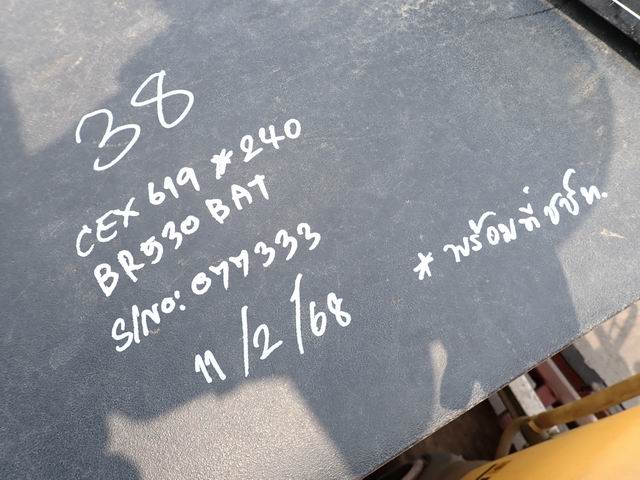 38
CEX 619 * 240
BR530 BAT
S/NO: 077333
11/2/68
* พร้อมที่